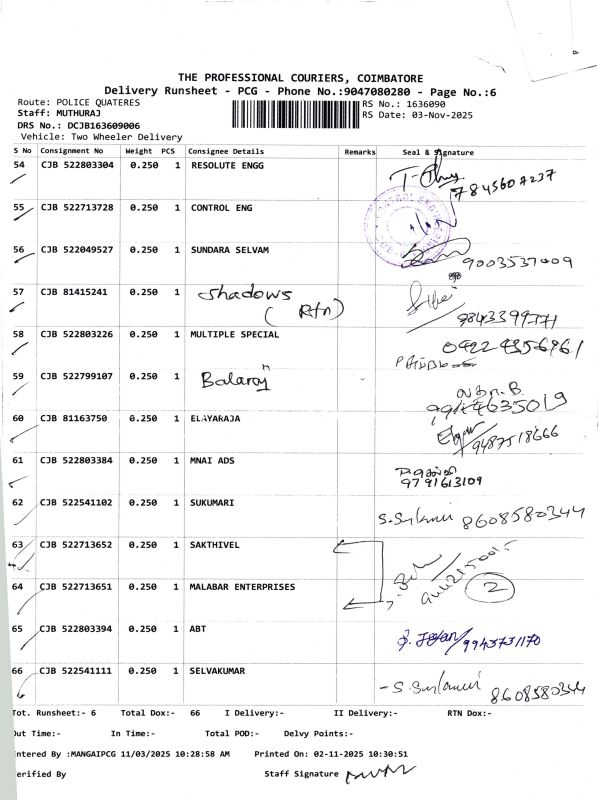 THE PROFESSIONAL COURIERS, COIMBATORE
Delivery Runsheet - PCG - Phone No.:9047080280 - Page No.:6
Route: POLICE QUATERES
Staff: MUTHURAJ
DRS No.: DCJB163609006
Vehicle: Two Wheeler Delivery
RS No.: 1636090
RS Date: 03-Nov-2025
S No Consignment No Weight PCS Consignee Details Remarks Seal & Signature
54 CJB 522803304 0.250 1 RESOLUTE ENGG 7845607237
55 CJB 522713728 0.250 1 CONTROL ENG
56 CJB 522049527 0.250 1 SUNDARA SELVAM 9003537009
57 CJB 81415241 0.250 1 Shadows (Rtn) 9843399771
58 CJB 522803226 0.250 1 MULTIPLE SPECIAL 0422 4356961
59 CJB 522799107 0.250 1 Balaraj
60 CJB 81163750 0.250 1 ELAYARAJA 9487518666
61 CJB 522803384 0.250 1 MNAI ADS 9791613109
62 CJB 522541102 0.250 1 SUKUMARI 8608580344
63 CJB 522713652 0.250 1 SAKTHIVEL
64 CJB 522713651 0.250 1 MALABAR ENTERPRISES 2
65 CJB 522803394 0.250 1 ABT 9943731170
66 CJB 522541111 0.250 1 SELVAKUMAR 8608580344
Tot. Runsheet:- 6 Total Dox:- 66 I Delivery:- II Delivery:- RTN Dox:-
Out Time:- In Time:- Total POD:- Delvy Points:-
Entered By :MANGAIPCG 11/03/2025 10:28:58 AM Printed On: 02-11-2025 10:30:51
Verified By Staff Signature